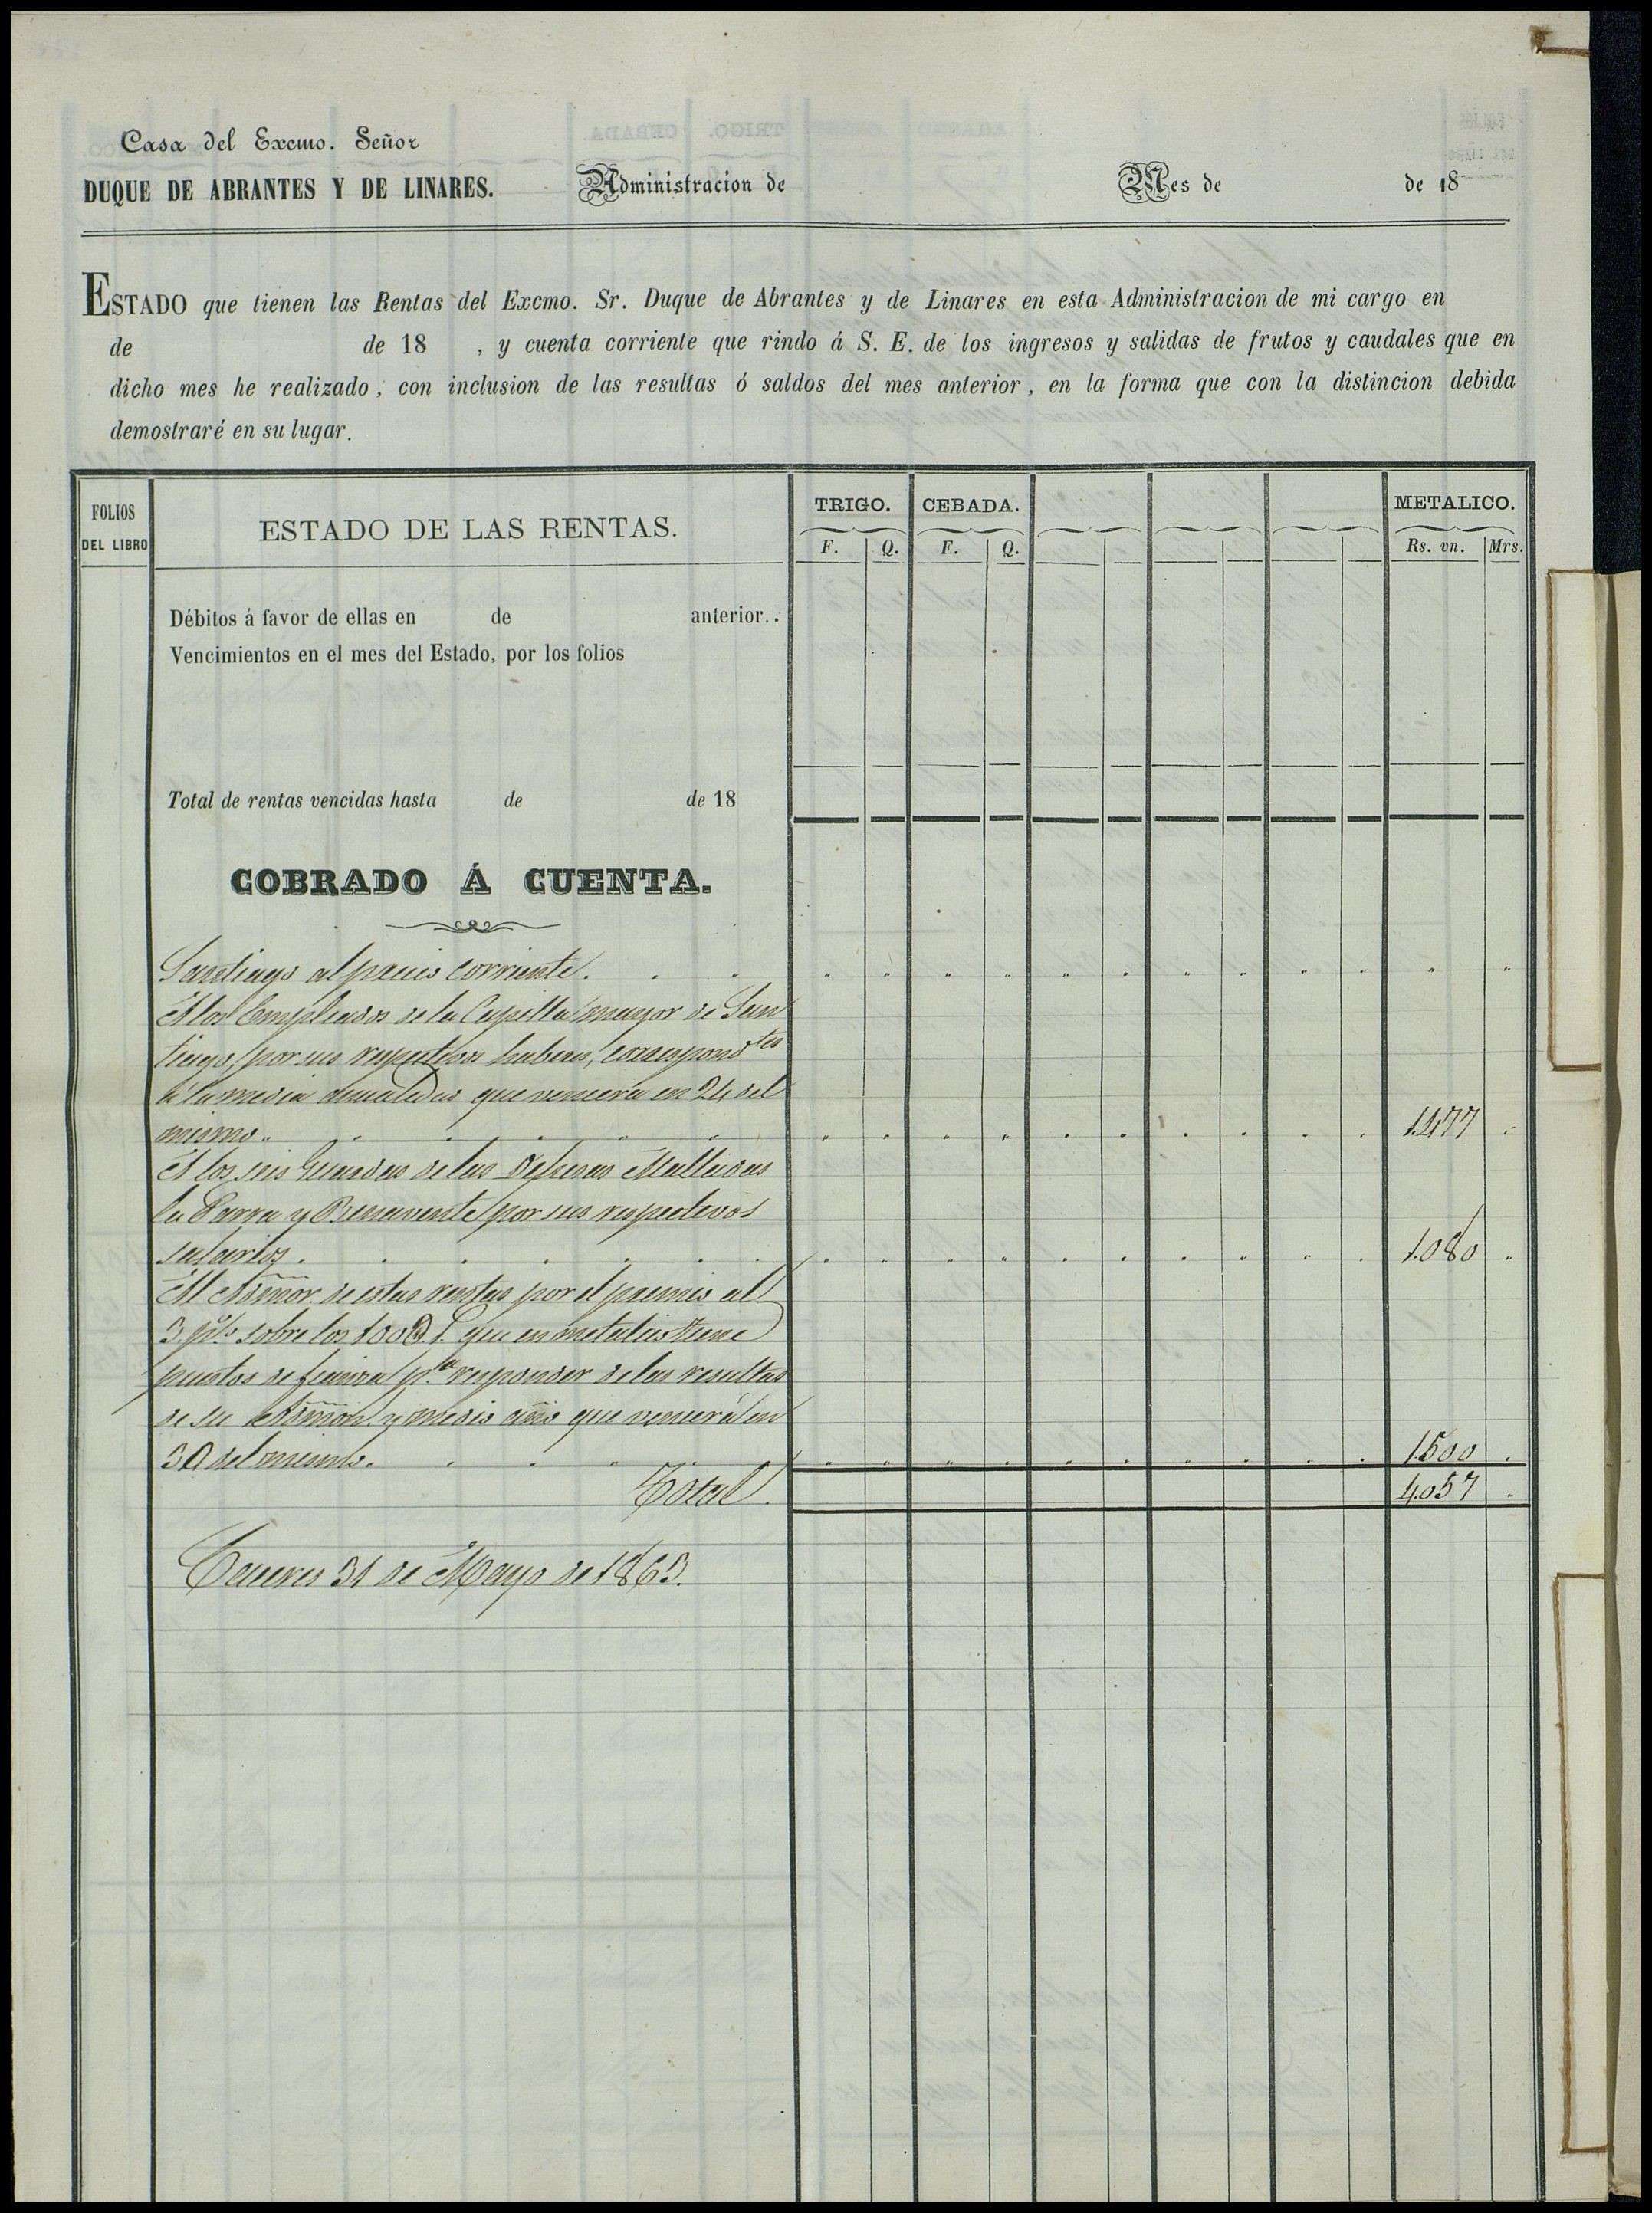 Casa del Excmo. Señor
DUQUE DE ABRANTES Y DE LINARES. Administracion de Mes de de 18
ESTADO que tienen las Rentas del Excmo. Sr. Duque de Abrantes y de Linares en esta Administracion de mi cargo en
de de 18 , y cuenta corriente que rindo á S. E. de los ingresos y salidas de frutos y caudales que en
dicho mes he realizado, con inclusion de las resultas ó saldos del mes anterior, en la forma que con la distincion debida
demostraré en su lugar.
FOLIOS DEL LIBRO ESTADO DE LAS RENTAS. TRIGO. CEBADA. METALICO.
F. Q. F. Q. Rs. vn. Mrs.
Débitos á favor de ellas en de anterior..
Vencimientos en el mes del Estado, por los folios
Total de rentas vencidas hasta de de 18
COBRADO Á CUENTA.
Santiago al precio corriente.
A los Empleados de la Capilla mayor de San
tiago, por sus respectivos haberes, correspondtes
á la media anualidad que vencera en 24 del
mismo. 1.477
A los seis Guardas de las Dehesas Malladas
la Parra y Benavente por sus respectivos
salarios. 1.080
Al Admor. de estas rentas por el premio al
3 p% sobre los 100 que en metalico tiene
puestos de fianza pa. responder de las resultas
de su Admon. y medio año que vencerá en
30 del mismo. 1.500
Total. 4.057
Caceres 31 de Mayo de 1863.